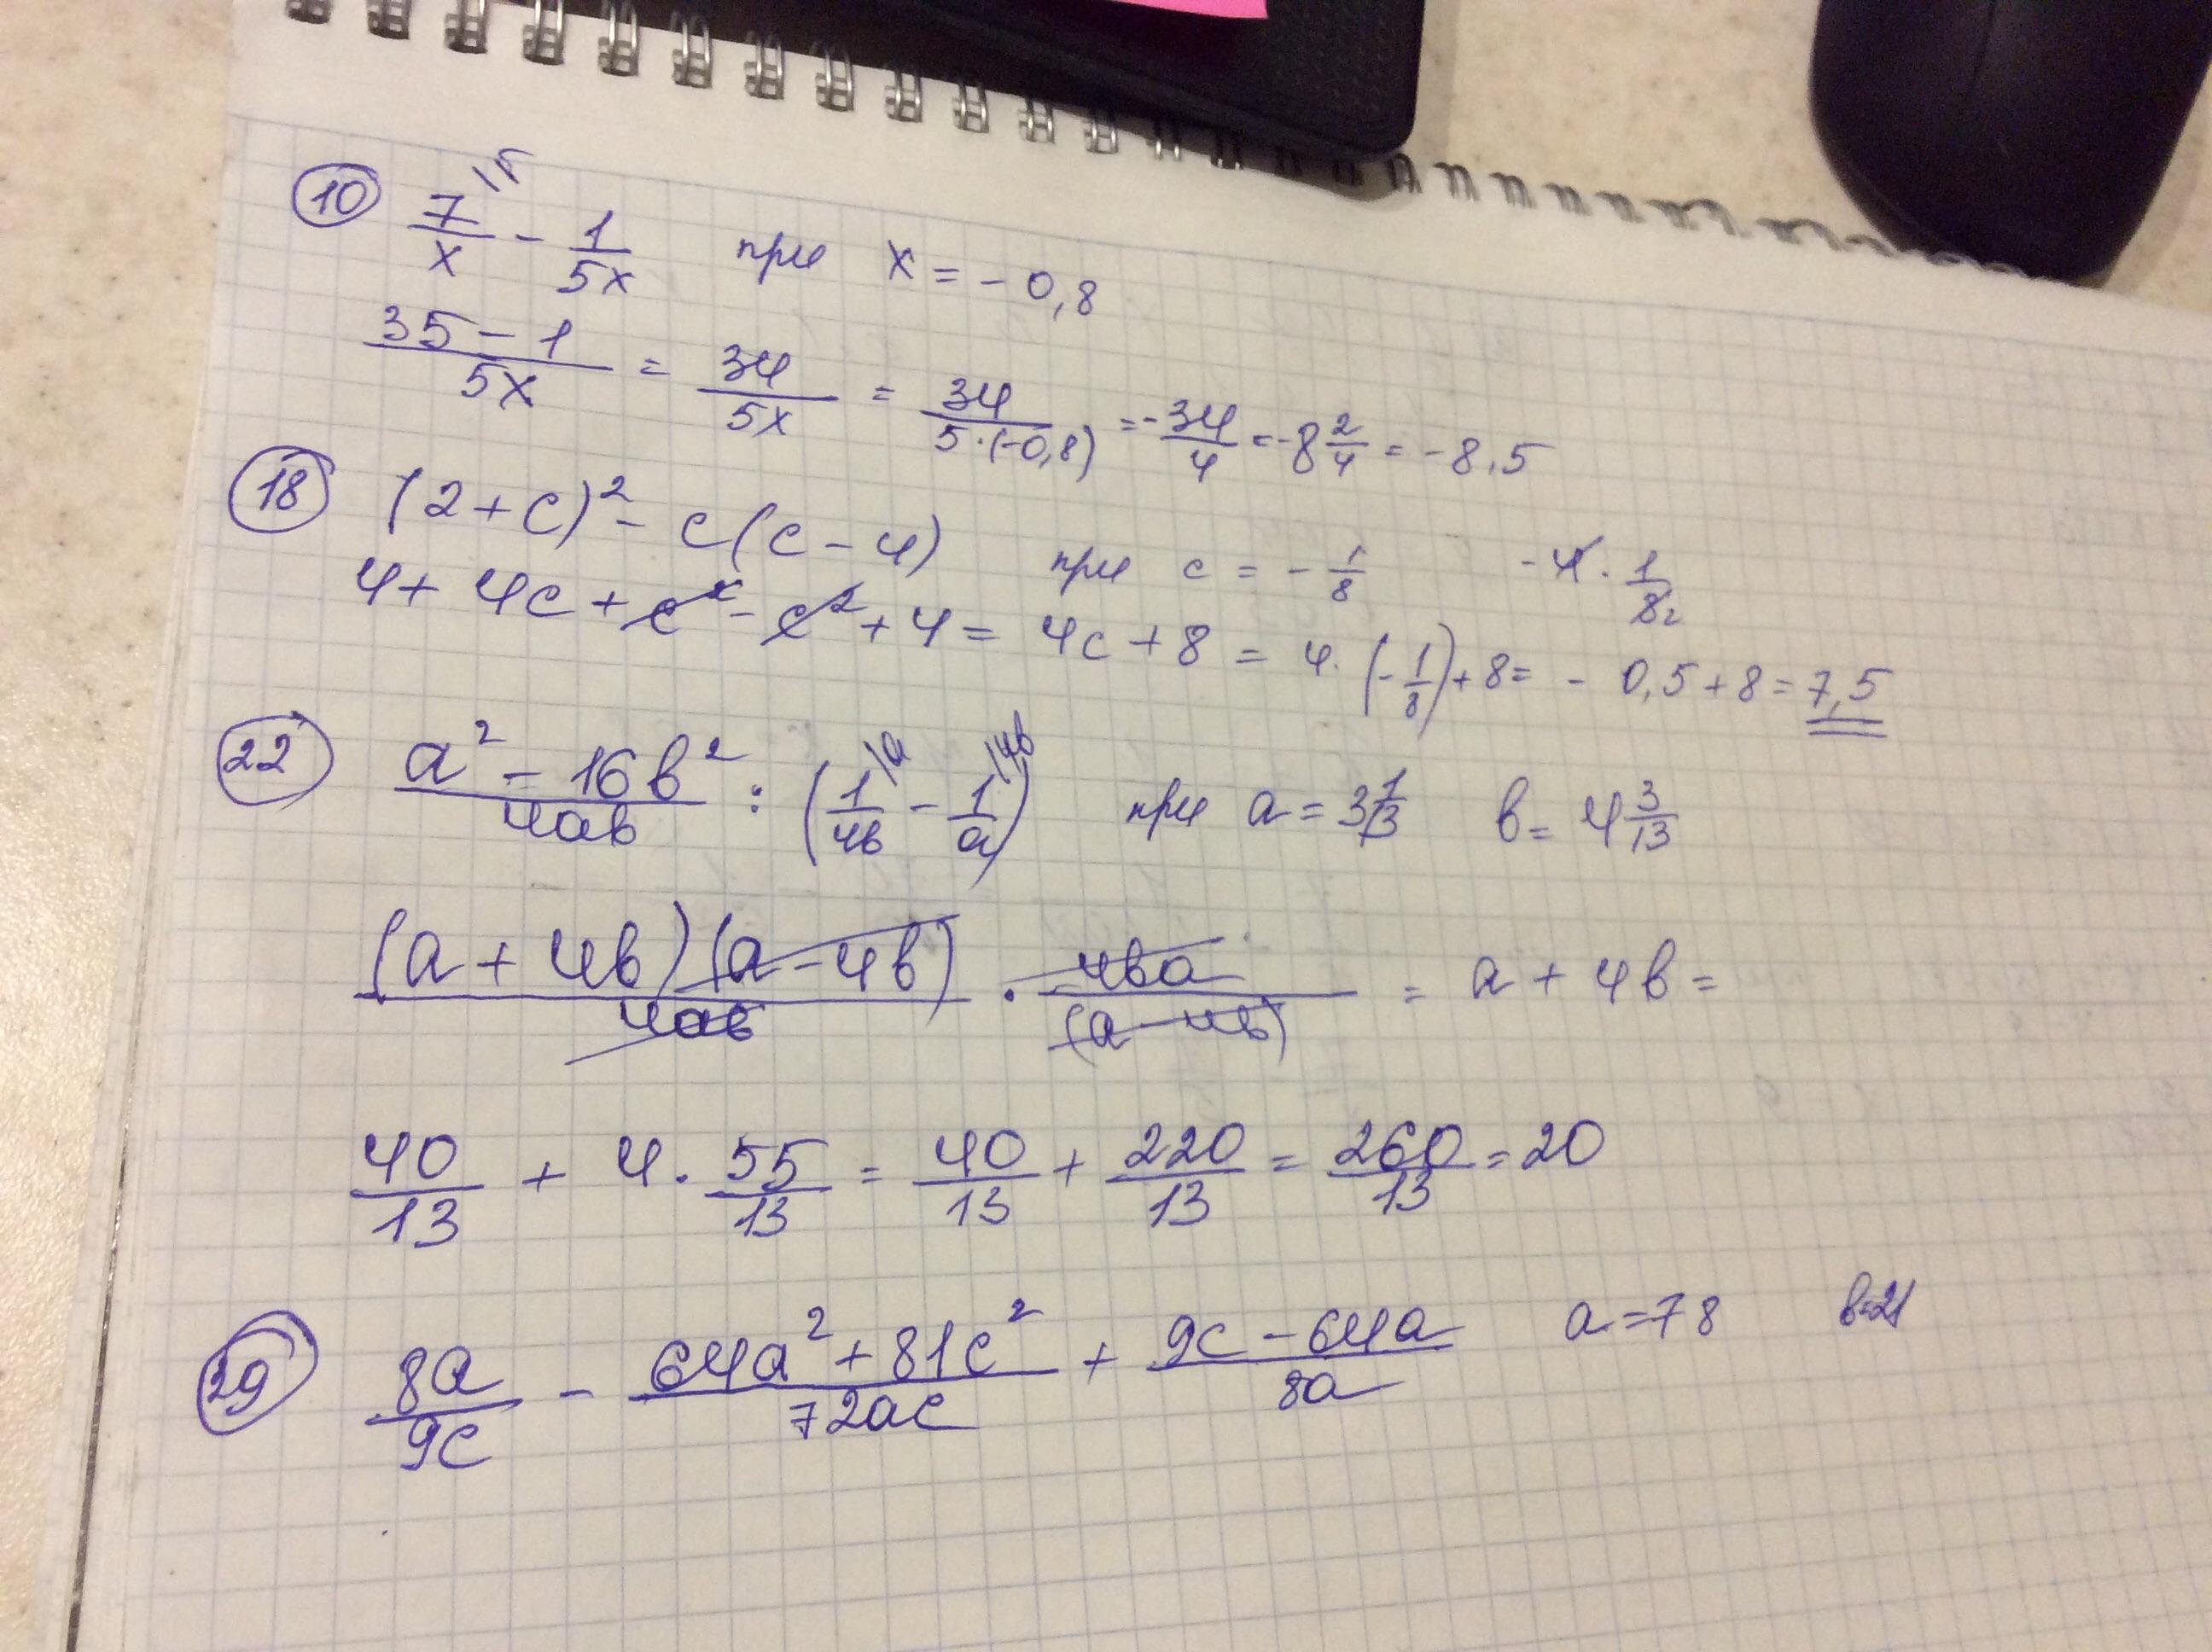 10 7/x \5 - 1/5x при x = -0,8
35-1/5x = 34/5x = 34/5·(-0,8) = -34/4 = -8 2/4 = -8.5
18 (2+c)² - c(c-4) при c = -1/8 -4·1/8 2
4+4c+c²-c²+4 = 4c+8 = 4·(-1/8)+8 = -0,5+8 = 7,5
22 a²-16b²/4ab : (1/4b \a - 1/a \4b) при a = 3 1/13 b = 4 3/13
(a+4b)(a-4b)/4ab · 4ba/(a-4b) = a+4b =
40/13 + 4·55/13 = 40/13 + 220/13 = 260/13 = 20
29 8a/9c - 64a²+81c²/72ac + 9c-64a/8a a=78 b=21